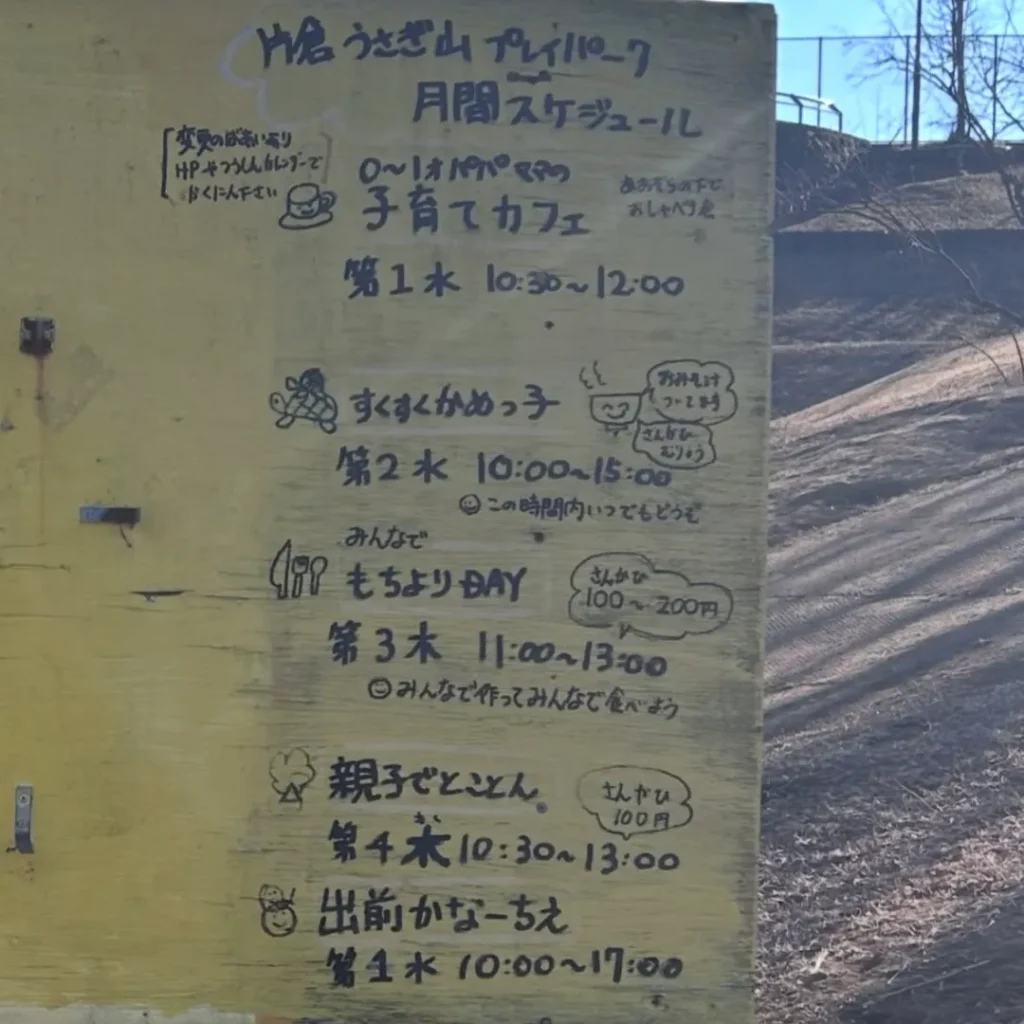 片倉うさぎ山プレイパーク
月間スケジュール
変更のばあいあり
HPやつうしんカレンダーで
かくにん下さい
0〜1才パパママの
子育てカフェ
あおぞらの下で
おしゃべり
第1水 10:30〜12:00
すくすくかめっ子
おみそ汁
ついてます
さんかひ
むりょう
第2水 10:00〜15:00
この時間内いつでもどうぞ
みんなで
もちよりDAY
さんかひ
100〜200円
第3木 11:00〜13:00
みんなで作ってみんなで食べよう
親子でとことん
さんかひ
100円
第4木 10:30〜13:00
出前かなーちえ
第1水 10:00〜17:00